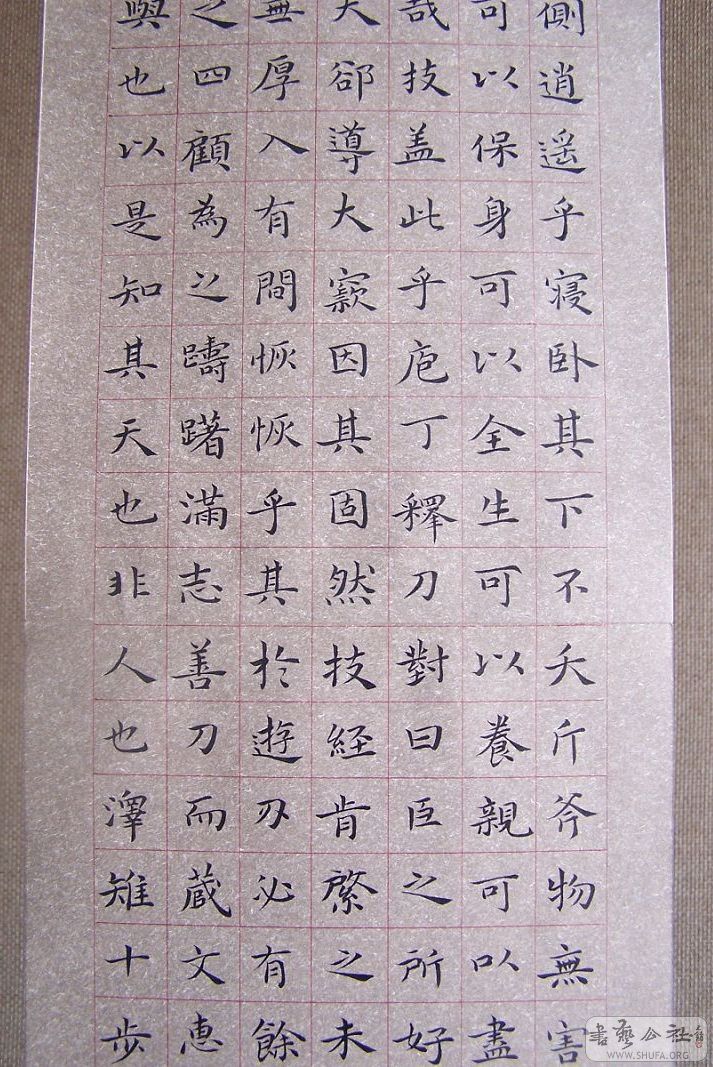 側逍遥乎寝卧其下不夭斤斧物無害
可以保身可以全生可以養親可以盡
哉技盖此乎庖丁釋刀對曰臣之所好
大郤導大窾因其固然技経肯綮之未
無厚入有間恢恢乎其於遊刃必有餘
之四顧為之躊躇滿志善刀而蔵文恵
與也以是知其天也非人也澤雉十步
書藝公社
WWW.SHUFA.ORG